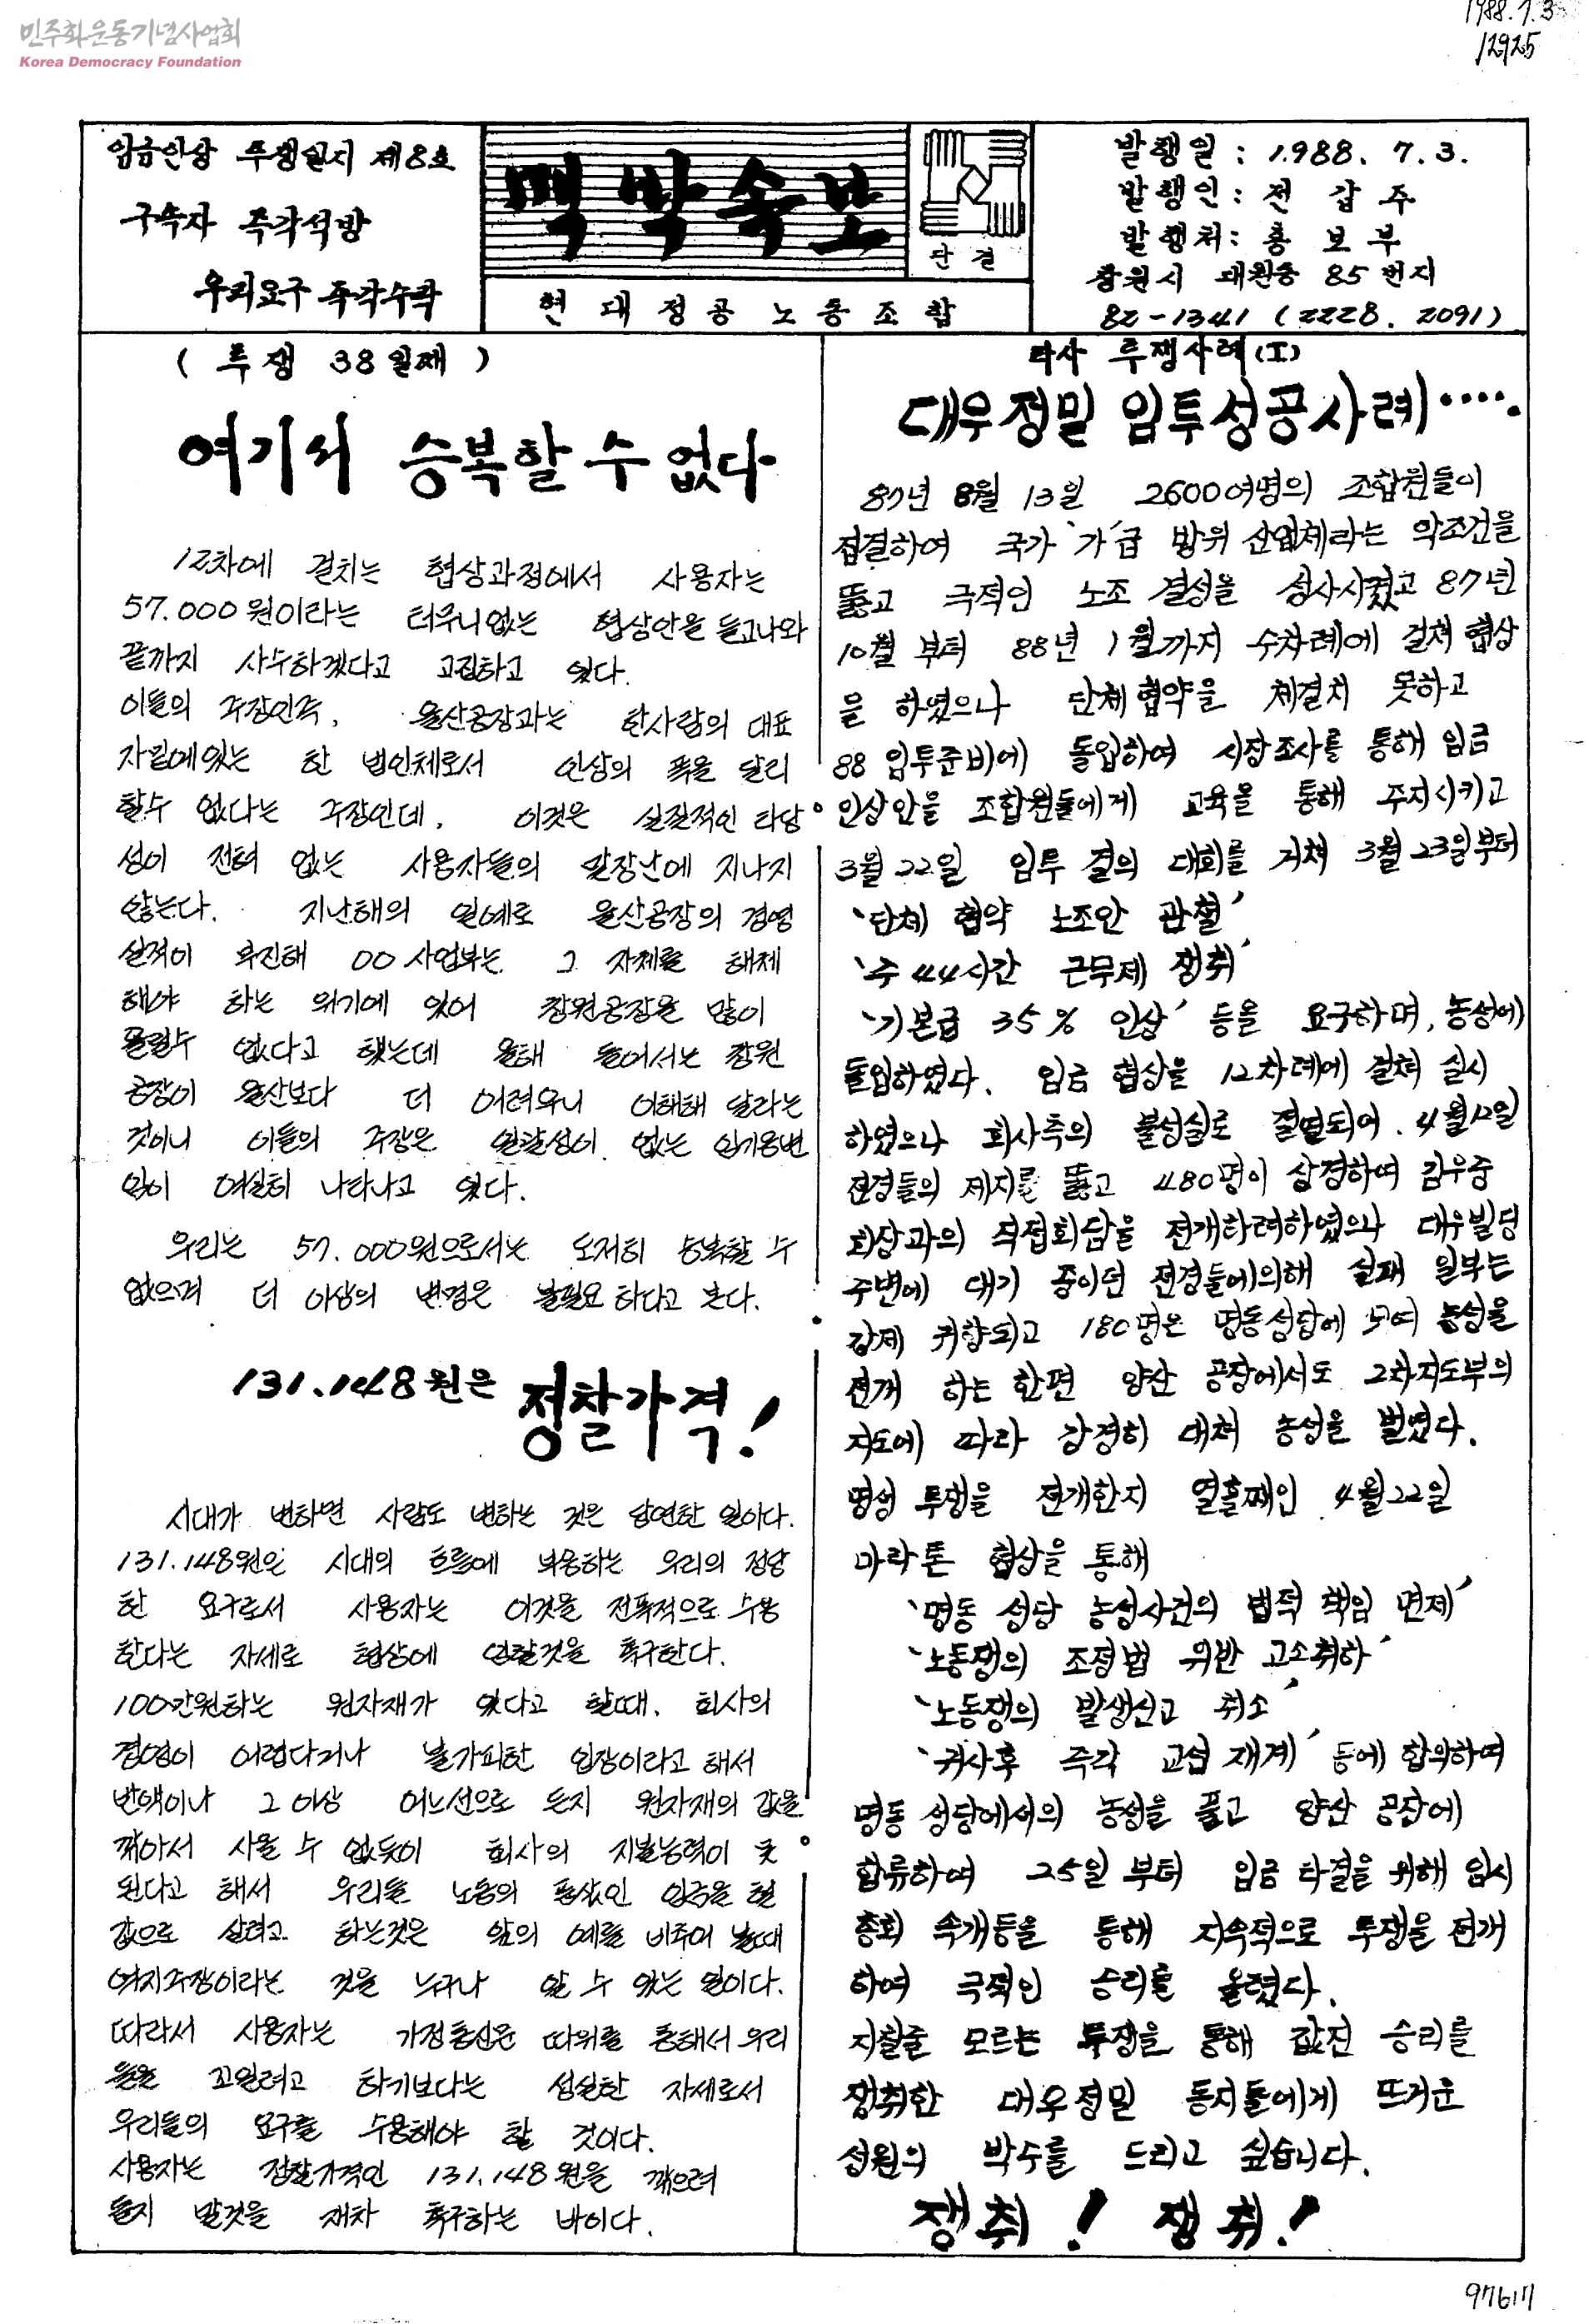 민주화운동기념사업회
Korea Democracy Foundation
1988.7.3
12925
임금인상 투쟁일지 제8호
구속자 즉각석방
우리요구 즉각수락
맥박속보
단결
현대정공노동조합
발행일 : 1988. 7. 3.
발행인 : 전 갑 주
발행처 : 홍 보 부
창원시 대원동 85번지
82-1341 (2228. 2091)
( 투쟁 38일째 )
여기서 승복할 수 없다
12차에 걸치는 협상과정에서 사용자는
57.000원이라는 터무니없는 협상안을 들고나와
끝까지 사수하겠다고 고집하고 있다.
이들의 주장인즉, 울산공장과는 한사람의 대표
자밑에있는 한 법인체로서 인상의 폭을 달리
할수 없다는 주장인데, 이것은 실질적인 타당
성이 전혀 없는 사용자들의 말장난에 지나지
않는다. 지난해의 일예로 울산공장의 경영
실적이 부진해 00사업부는 그 자체를 해체
해야 하는 위기에 있어 창원공장을 많이
올릴수 없다고 했는데 올해 들어서는 창원
공장이 울산보다 더 어려우니 이해해 달라는
것이니 이들의 주장은 일괄성이 없는 임기응변
임이 여실히 나타나고 있다.
우리는 57.000원으로서는 도저히 승복할 수
없으며 더 이상의 변경은 불필요 하다고 본다.
131.148원은 정찰가격!
시대가 변하면 사람도 변하는 것은 당연한 일이다.
131.148원은 시대의 흐름에 부응하는 우리의 정당
한 요구로서 사용자는 이것을 전폭적으로 수용
한다는 자세로 협상에 임할것을 촉구한다.
100만원하는 원자재가 있다고 할때, 회사의
경영이 어렵다거나 불가피한 입장이라고 해서
반액이나 그 이상 어느선으로 든지 원자재의 값을
깎아서 사올 수 없듯이 회사의 지불능력이 못
된다고 해서 우리들 노동의 품삯인 임금을 헐
값으로 살려고 하는것은 앞의 예를 비추어 볼때
억지주장이라는 것을 누구나 알 수 있는 일이다.
따라서 사용자는 가정통신문 따위를 통해서 우리
들을 꼬일려고 하기보다는 성실한 자세로서
우리들의 요구를 수용해야 할 것이다.
사용자는 정찰가격인 131.148원을 깎으려
들지 말것을 재차 촉구하는 바이다.
타사 투쟁사례(I)
대우정밀 임투성공사례·····
87년 8월 13일 2600여명의 조합원들이
집결하여 국가 '가'급 방위 산업체라는 악조건을
뚫고 극적인 노조 결성을 성사시켰고 87년
10월 부터 88년 1월까지 수차례에 걸쳐 협상
을 하였으나 단체협약을 체결치 못하고
88 임투준비에 돌입하여 시장조사를 통해 임금
인상안을 조합원들에게 교육을 통해 주지시키고
3월 22일 임투 결의 대회를 거쳐 3월 23일부터
'단체 협약 노조안 관철'
'주 44시간 근무제 쟁취'
'기본급 35% 인상' 등을 요구하며, 농성에
돌입하였다. 임금 협상을 12차례에 걸쳐 실시
하였으나 회사측의 불성실로 결렬되어. 4월12일
전경들의 제지를 뚫고 480명이 상경하여 김우중
회장과의 직접회담을 전개하려하였으나 대우빌딩
주변에 대기 중이던 전경들에의해 실패 일부는
강제 귀향되고 180명은 명동성당에 모여 농성을
전개 하는 한편 양산 공장에서도 2차지도부의
지도에 따라 강경히 대처 농성을 벌였다.
명성 투쟁을 전개한지 열흘째인 4월22일
마라톤 협상을 통해
'명동 성당 농성사건의 법적 책임 면제'
'노동쟁의 조정법 위반 고소취하'
'노동쟁의 발생신고 취소'
'귀사후 즉각 교섭 재계' 등에 합의하여
명동 성당에서의 농성을 풀고 양산 공장에
합류하여 25일 부터 임금 타결을 위해 임시
총회 속개등을 통해 지속적으로 투쟁을 전개
하여 극적인 승리를 올렸다.
지칠줄 모르는 투쟁을 통해 값진 승리를
쟁취한 대우정밀 동지들에게 뜨거운
성원의 박수를 드리고 싶습니다.
쟁취! 쟁취!
97617